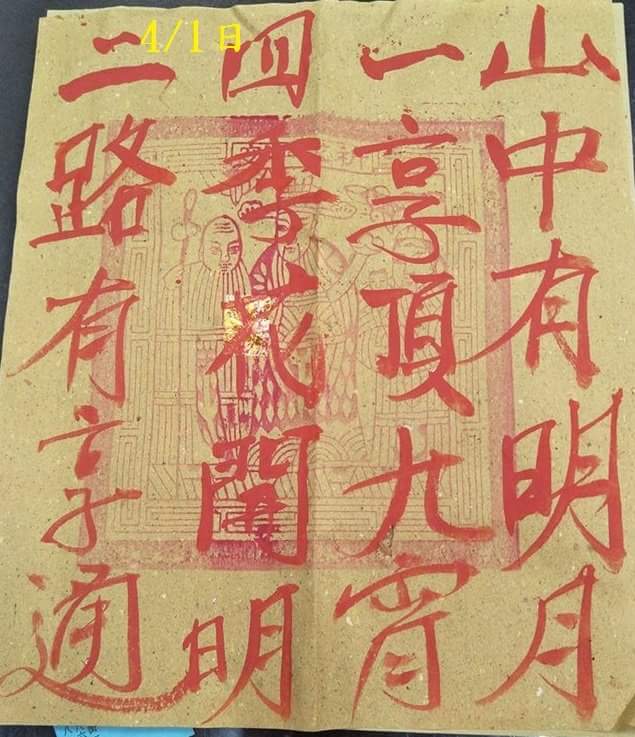 4/1日
山中有明月
一享頂九宵
四季花開明
二路有享通